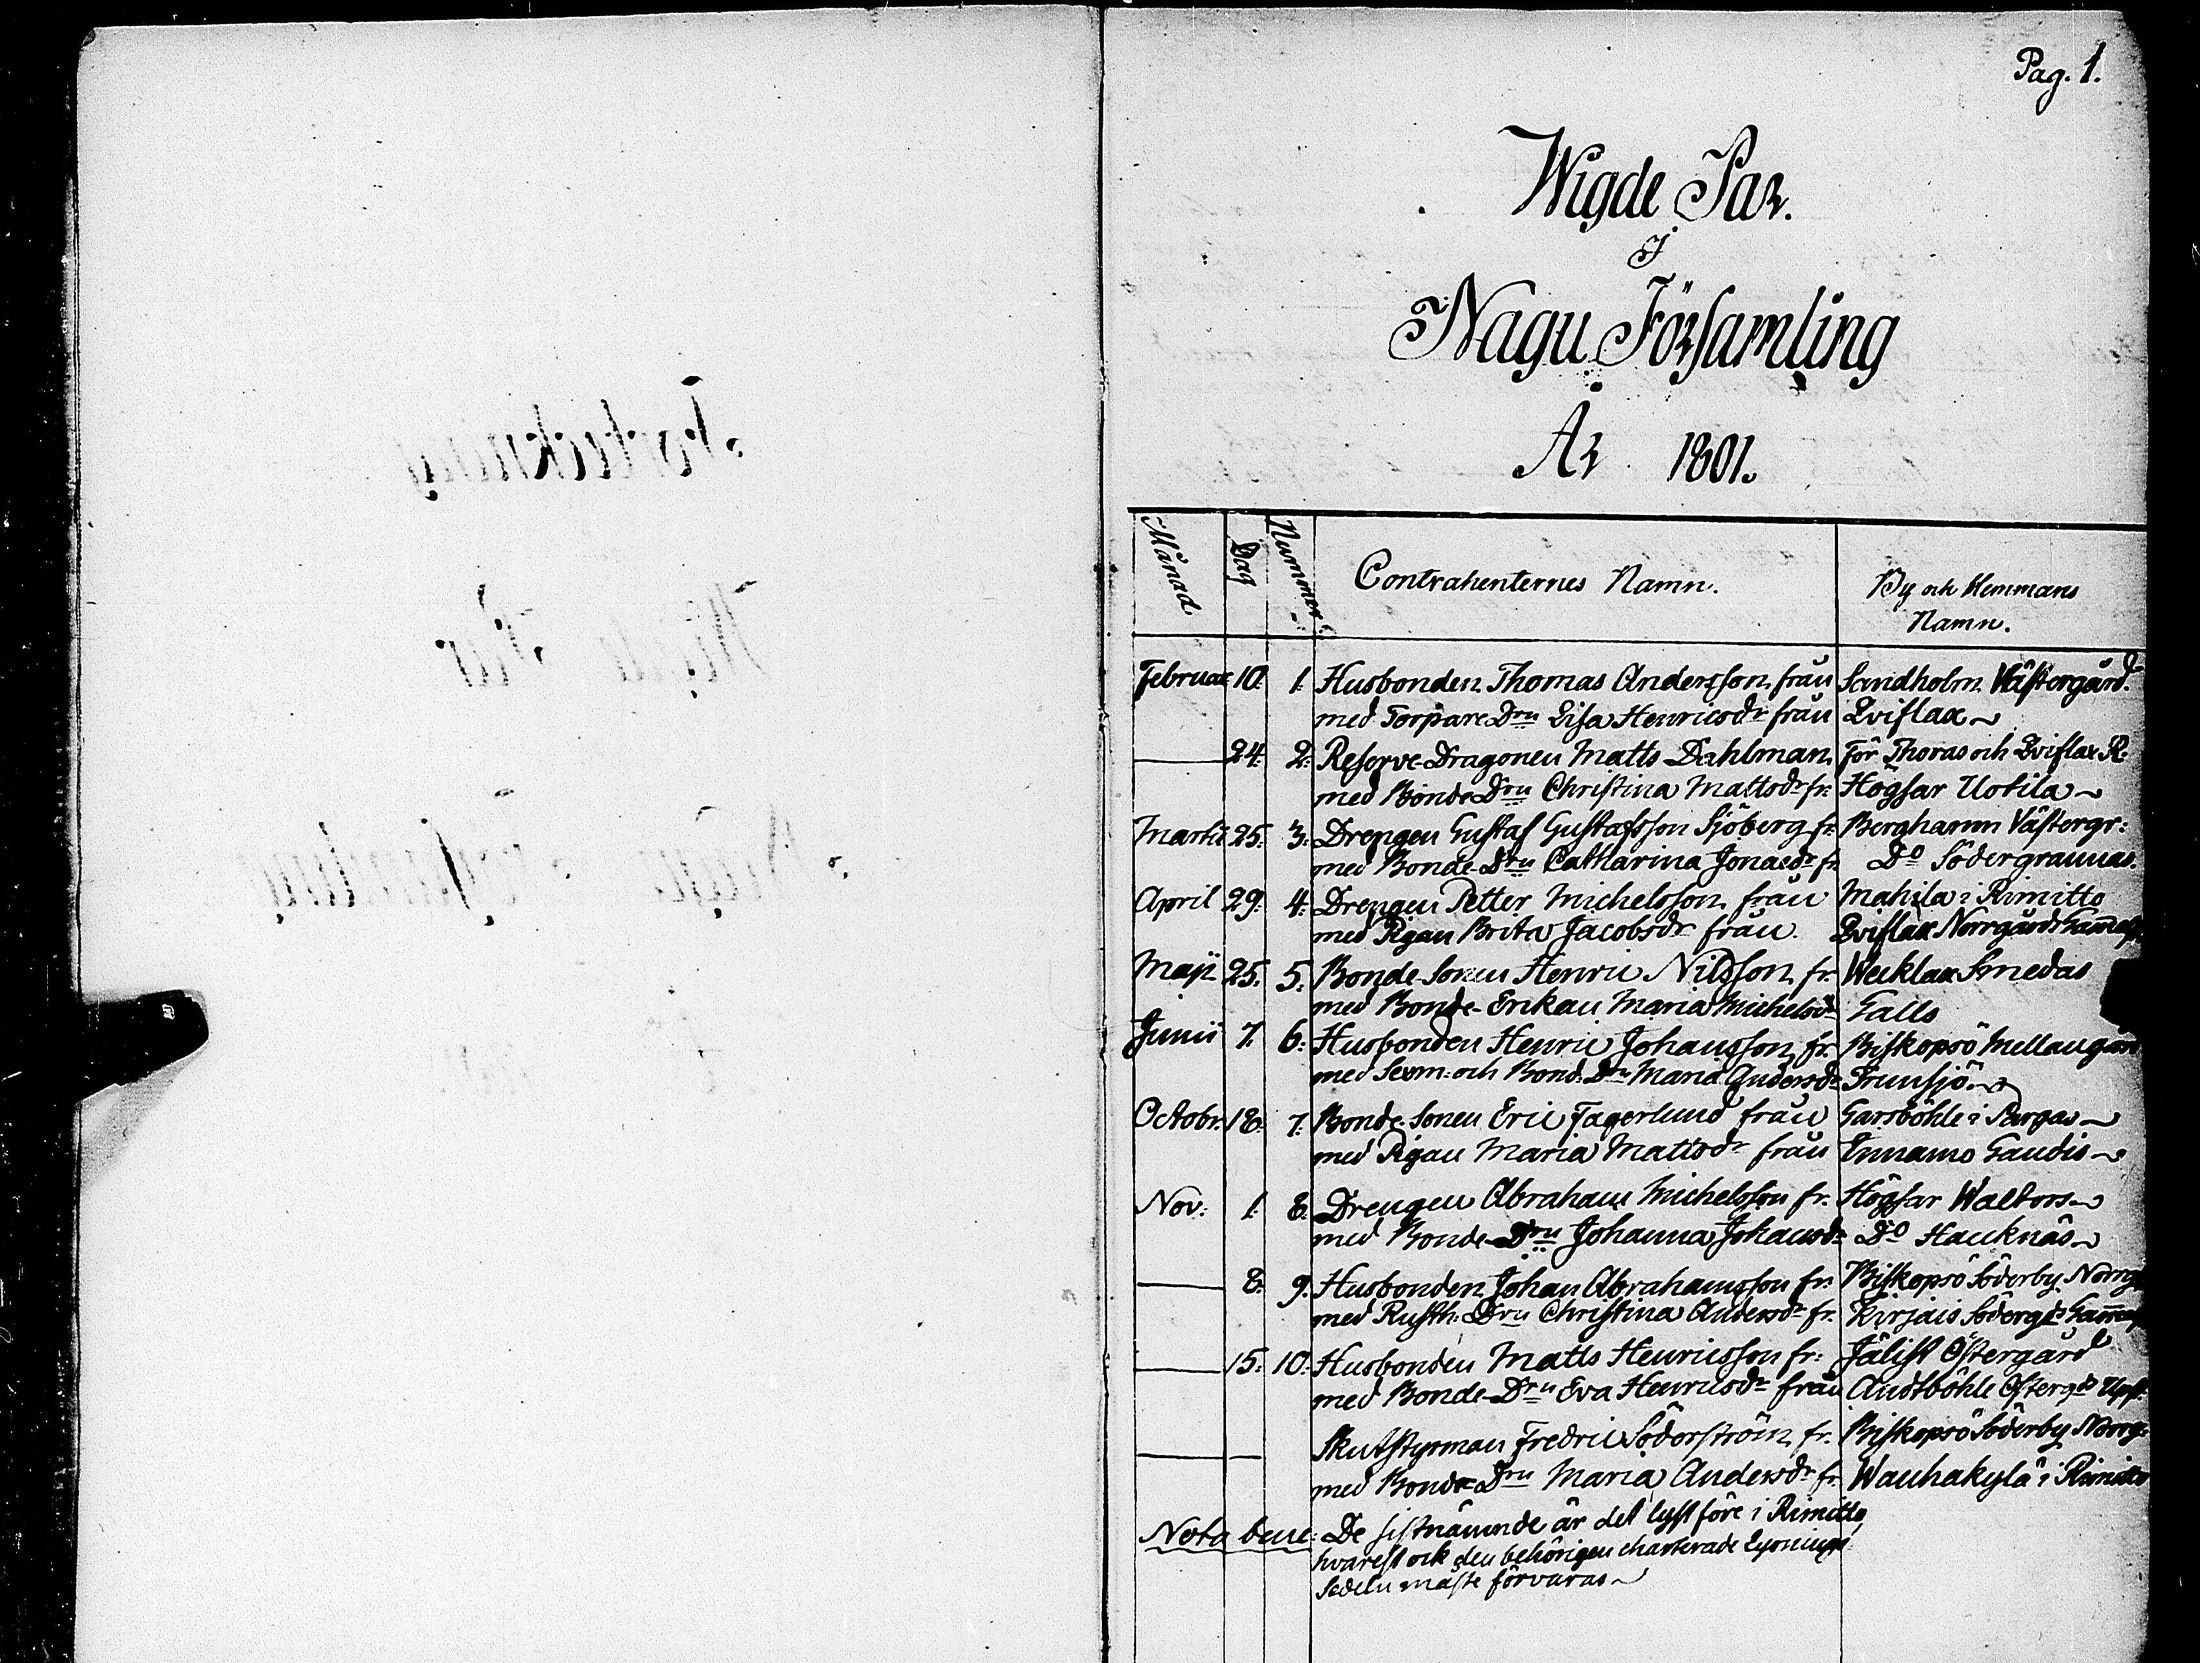 Pag. 1.
Wigde Par.
I
Nagu Församling
År 1801.
Månad Dag Nummer Contrahenternes Namn. By och Hemmans
Namn.
Februar 10. 1. Husbonden Thomas Andersson från Sandholm Västergård.
med Torpare Drn Lisa Henricsdr från Qviflax
24. 2. Reserve-Dragonen Matts Dahlman För Thoras och Qviflax R.
med Bonde Drn Christina Mattsdr fr. Högsar Uotila
Martii 25. 3. Drengen Gustaf Gustafsson Sjöberg fr. Berghamn Västergr:
med Bonde-Drn Catharina Jonasdr fr. Do Södergrannas.
April 29. 4. Drengen Petter Michelsson från Mahila i Rimitto
med Pigan Brita Jacobsdr från. Qviflax Norrgårds
Maji 25. 5. Bonde-Sonen Henric Nilsson fr. Wecklax Smedas
med Bonde-Enkan Maria Michelsdr Galls
Junii 7. 6. Husbonden Henric Johansson fr. Biskopsö Mellangård
med Sexm: och Bond. Drn Maria Andersdr Trunsjö
Octobr. 18. 7. Bonde-Sonen Eric Fagerlund från Garsböhle i Pargas
med Pigan Maria Mattsdr från Innamo Gaudis
Nov: 1. 8. Drengen Abraham Michelsson fr. Högsar Waltors
med Bonde-Drn Johanna Johansdr Do Hancknäs
8. 9. Husbonden Johan Abrahamsson fr. Biskopsö Söderby Norrg
med Rusth: Drn Christina Andersdr fr. Kirjais Södergds
15. 10. Husbonden Matts Henricsson fr: Jälist Östergård
med Bonde-Drn Eva Henricsdr från Andtböhle Östergds
Skutstyrman Fredric Söderström fr. Biskopsö Söderby Norrg:
med Bonde Drn Maria Andersdr fr. Wauhakylä i Rimitto
Nota bene: De sistnämnde är det lyst före i Rimitto,
hvarest ock den behörigen charterade Lysnings
Sedeln måste förvaras